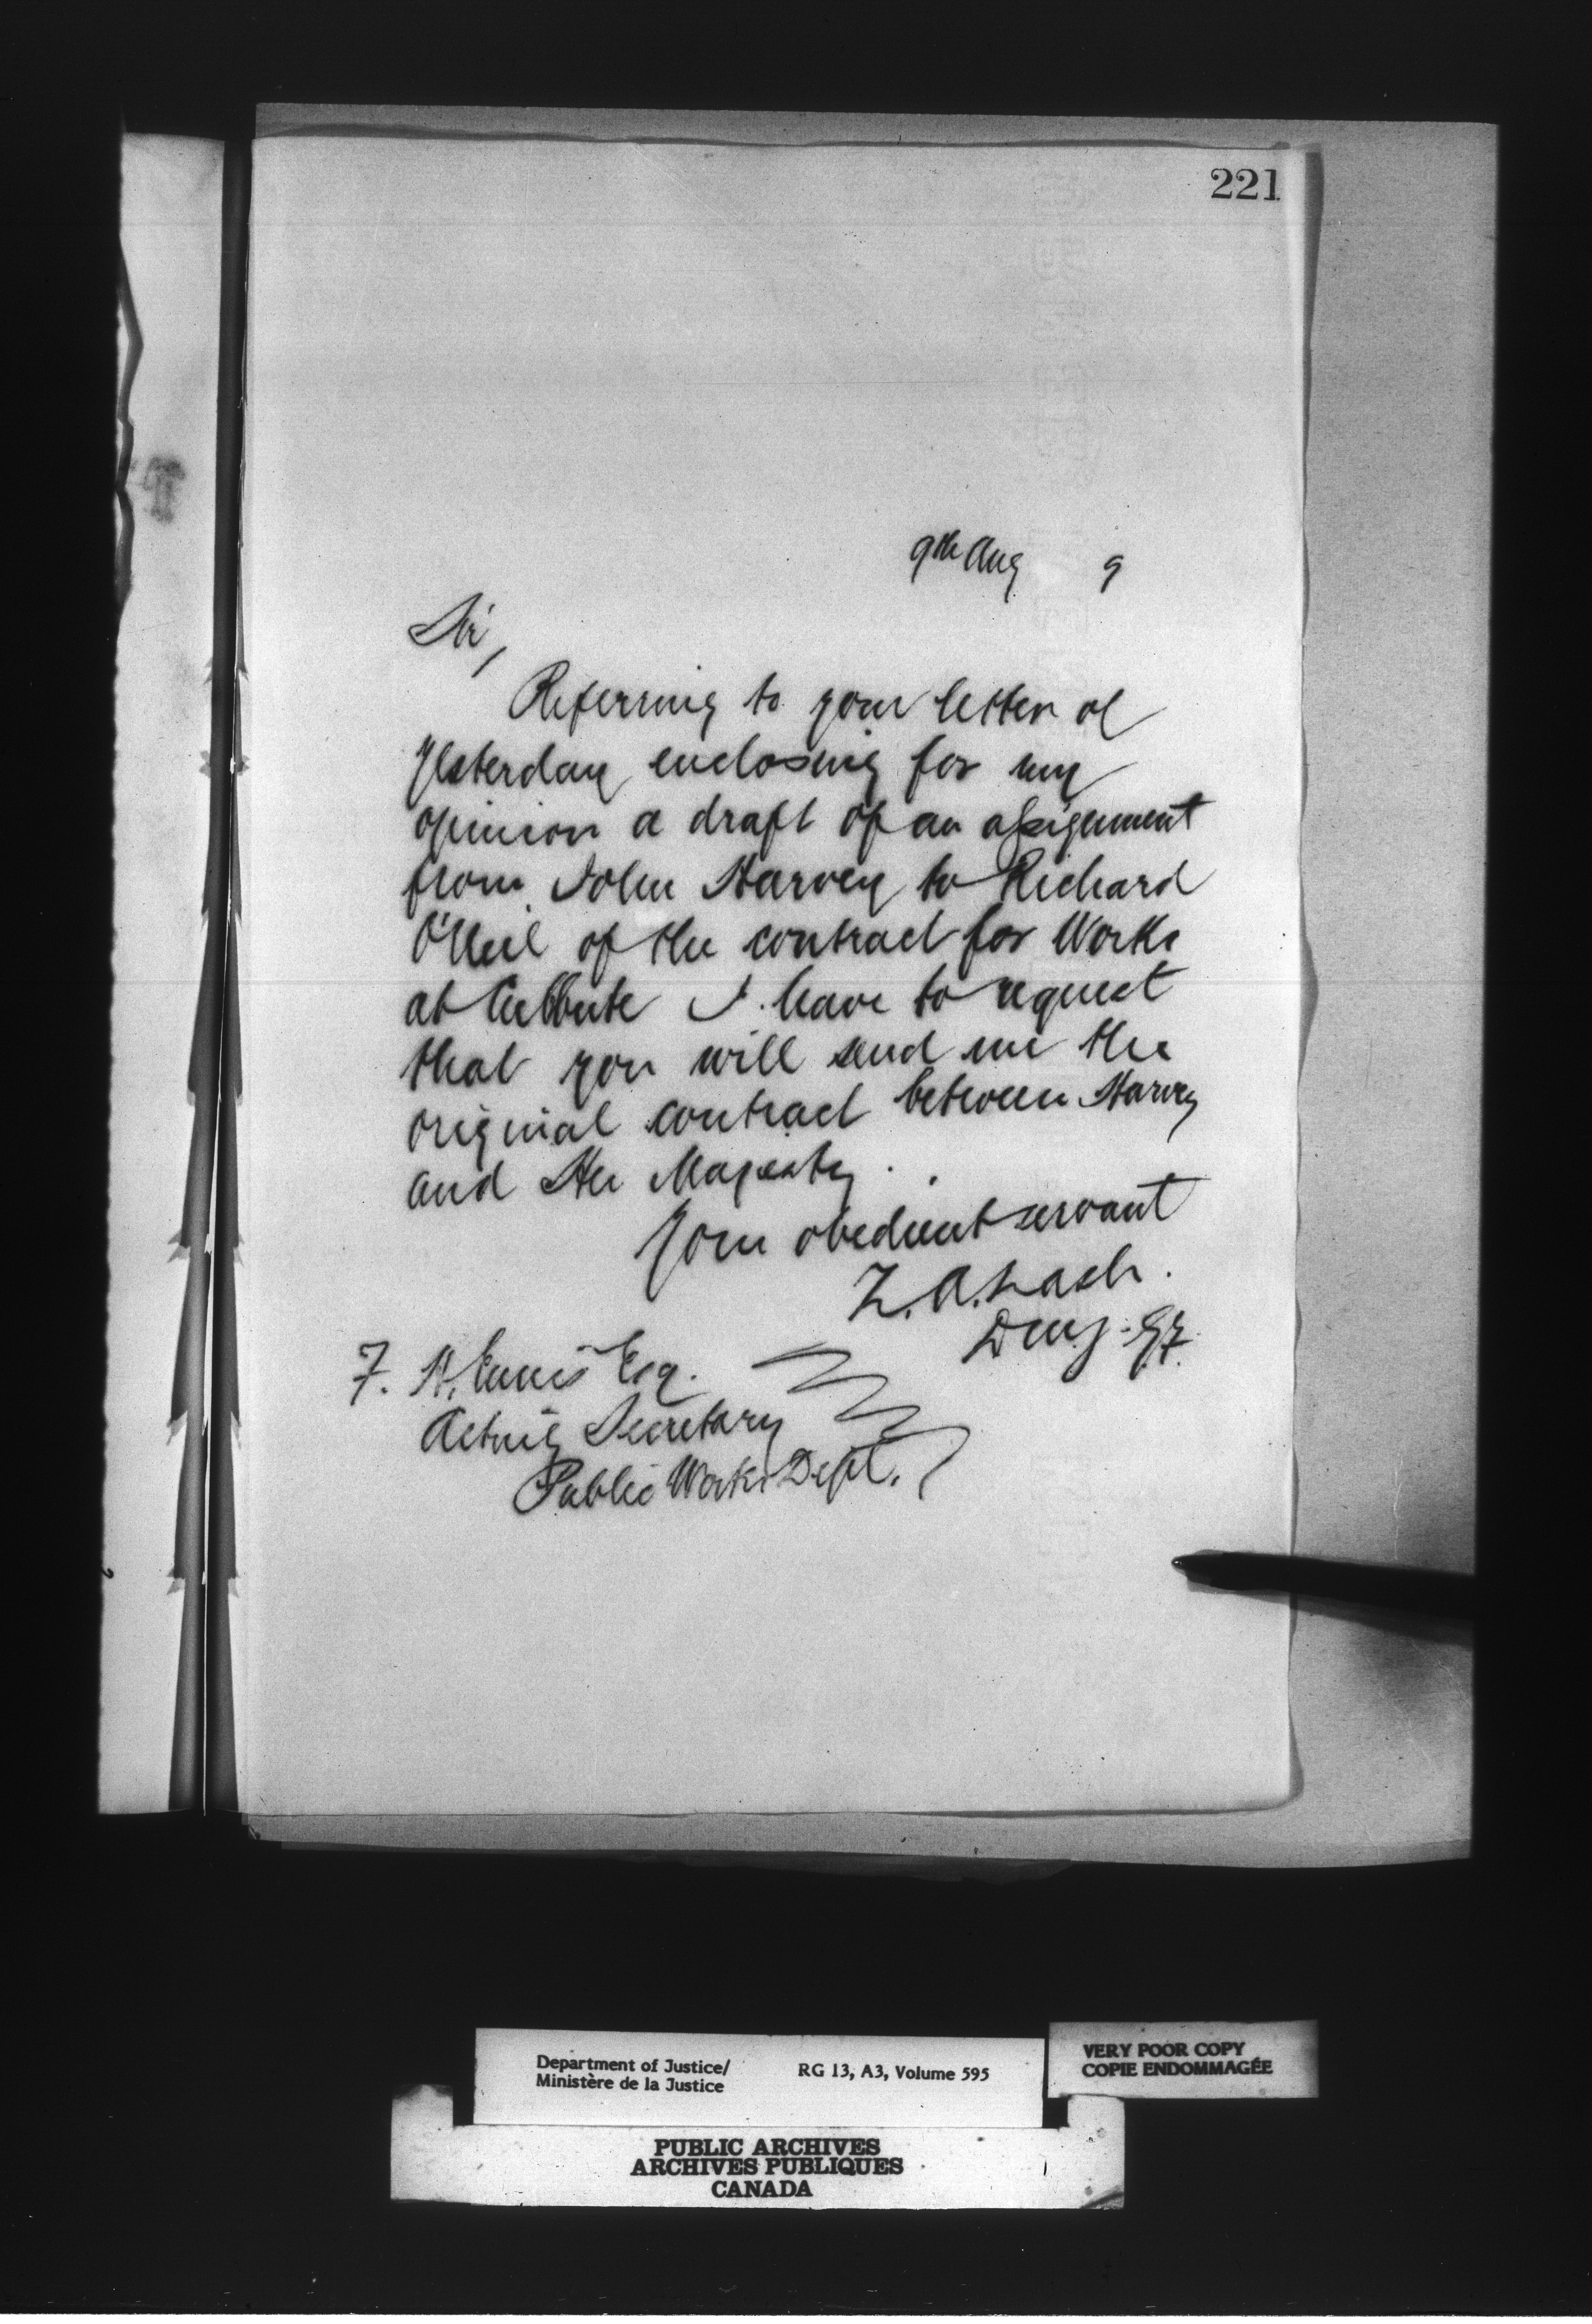 221
9th Aug 9
Sir,
Referring to your letter of
yesterday enclosing for my
opinion a draft of an assignment
from John Harvey to Richard
O'Neil of the contract for Works
at Culbute I have to request
that you will send me the
original contract between Harvey
and Her Majesty.
Your obedient servant
Z. A. Lash.
F. H. Ennis Esq.
Acting Secretary
Public Works Dept.
Department of Justice/ RG 13, A3, Volume 595
Ministère de la Justice
VERY POOR COPY
COPIE ENDOMMAGÉE
PUBLIC ARCHIVES
ARCHIVES PUBLIQUES
CANADA